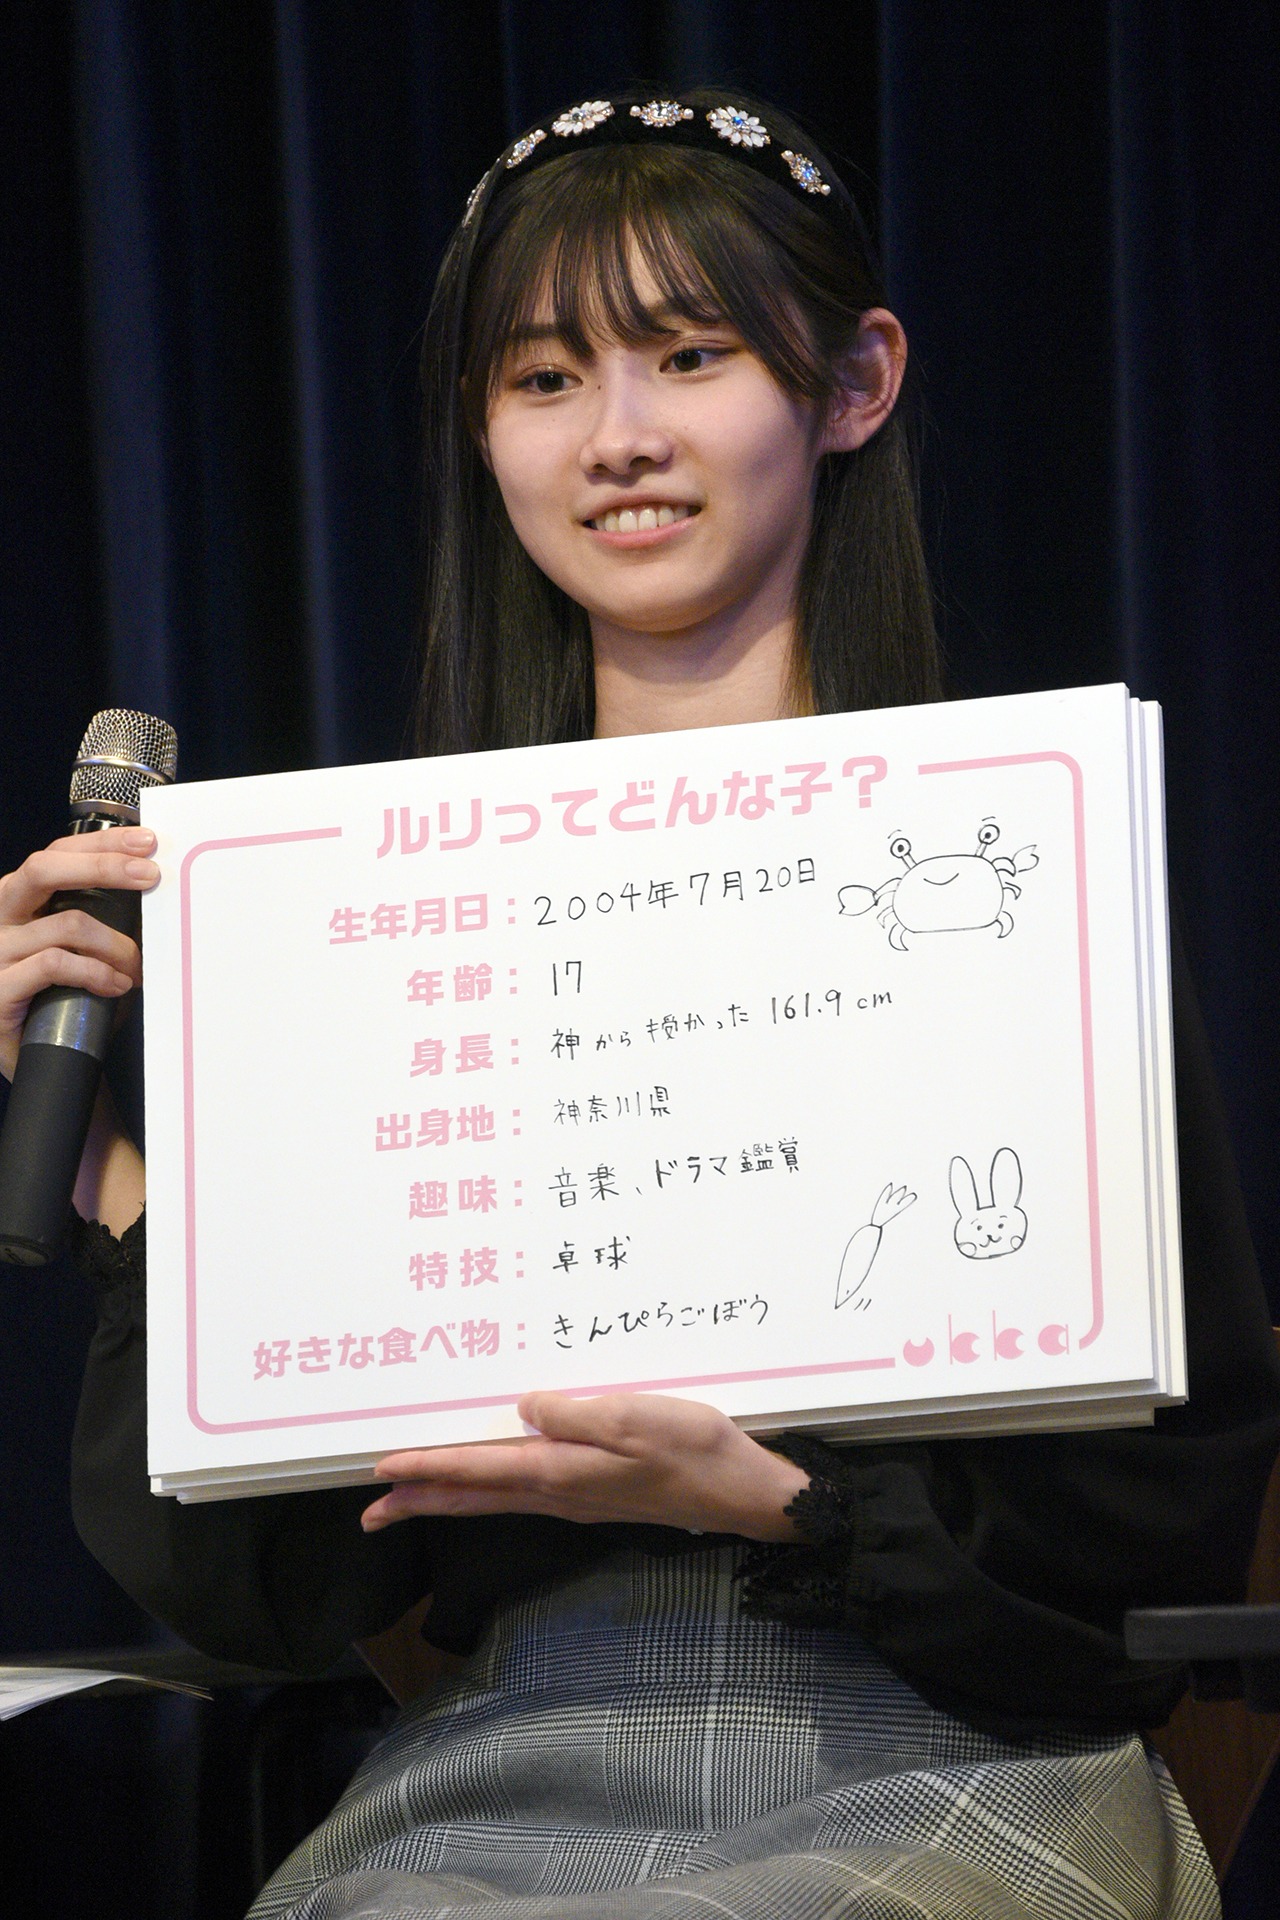 ルリってどんな子？
生年月日：2004年7月20日
年齢：17
身長：神から授かった 161.9 cm
出身地：神奈川県
趣味：音楽、ドラマ鑑賞
特技：卓球
好きな食べ物：きんぴらごぼう
ukka